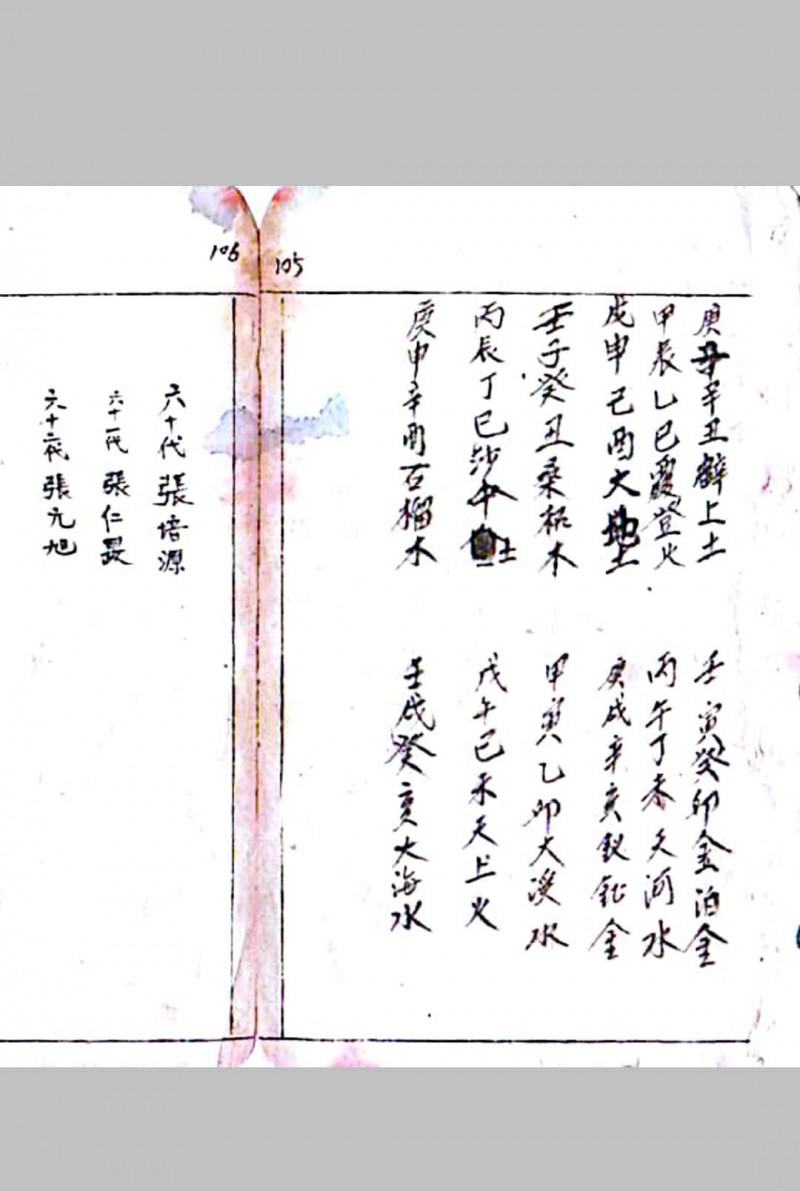 105
庚子辛丑壁上土 壬寅癸卯金泊金
甲辰乙巳覆登火 丙午丁未天河水
戊申己酉大地土 庚戌辛亥釵釧金
壬子癸丑桑柘木 甲寅乙卯大溪水
丙辰丁巳沙中土 戊午己未天上火
庚申辛酉石榴木 壬戌癸亥大海水
106
六十代 張培源
六十一代 張仁晸
六十二代 張元旭